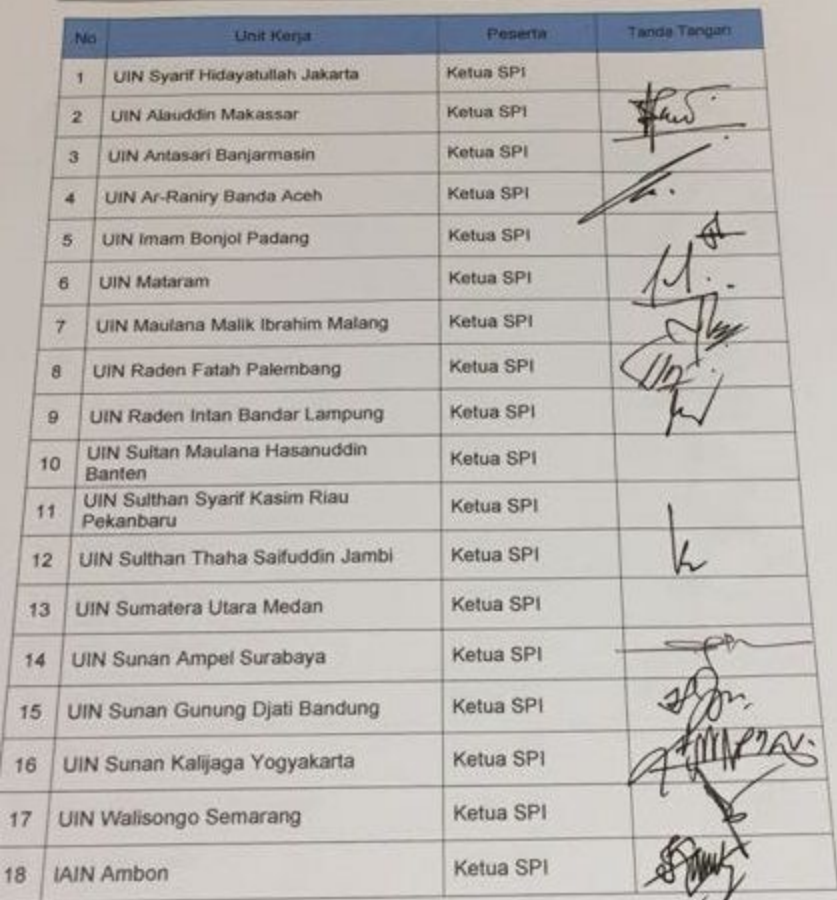 No Unit Kerja Peserta Tanda Tangan
1 UIN Syarif Hidayatullah Jakarta Ketua SPI
2 UIN Alauddin Makassar Ketua SPI
3 UIN Antasari Banjarmasin Ketua SPI
4 UIN Ar-Raniry Banda Aceh Ketua SPI
5 UIN Imam Bonjol Padang Ketua SPI
6 UIN Mataram Ketua SPI
7 UIN Maulana Malik Ibrahim Malang Ketua SPI
8 UIN Raden Fatah Palembang Ketua SPI
9 UIN Raden Intan Bandar Lampung Ketua SPI
10 UIN Sultan Maulana Hasanuddin
Banten Ketua SPI
11 UIN Sulthan Syarif Kasim Riau
Pekanbaru Ketua SPI
12 UIN Sulthan Thaha Saifuddin Jambi Ketua SPI
13 UIN Sumatera Utara Medan Ketua SPI
14 UIN Sunan Ampel Surabaya Ketua SPI
15 UIN Sunan Gunung Djati Bandung Ketua SPI
16 UIN Sunan Kalijaga Yogyakarta Ketua SPI
17 UIN Walisongo Semarang Ketua SPI
18 IAIN Ambon Ketua SPI